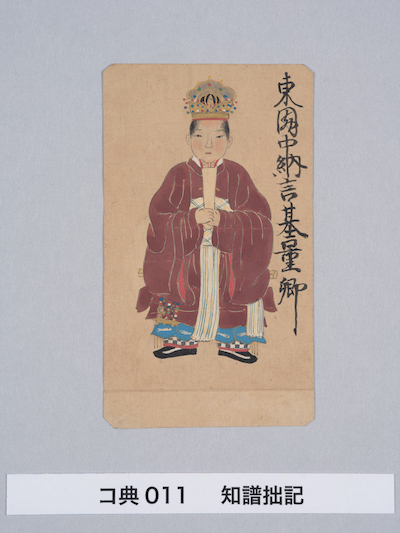 東園中納言基量卿
コ典011 知譜拙記